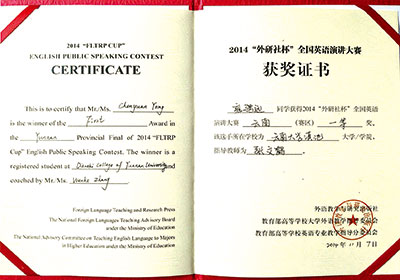 2014 "FLTRP CUP"
ENGLISH PUBLIC SPEAKING CONTEST
CERTIFICATE
This is to certify that Mr./Ms. Chengyuan Yang
is the winner of the First Award in
the Yunnan Provincial Final of 2014 "FLTRP
Cup" English Public Speaking Contest. The winner is a
registered student at Dianchi College of Yunnan University and
coached by Mr./Ms. Wenhe Zhang
Foreign Language Teaching and Research Press
The National Foreign Languages Teaching Advisory Board
under the Ministry of Education
The National Advisory Committee on Teaching English Language to Majors
in Higher Education under the Ministry of Education
2014 “外研社杯”全国英语演讲大赛
获奖证书
同学获得2014“外研社杯”全国英语
演讲大赛 云南 (赛区) 一等 奖,
该选手所在学校为 云南大学滇池 大学/学院,
指导教师为 张文鹤
外语教学与研究出版社
教育部高等学校大学外语教学指导委员会
教育部高等学校英语专业教学指导分委员会
2014 . 11 . 7